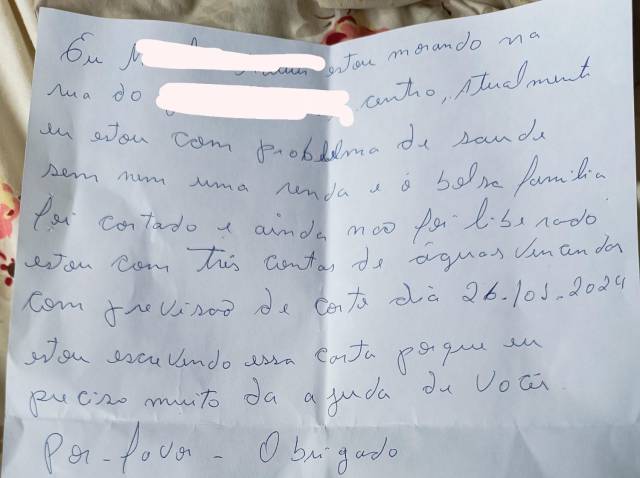 Eu estou morando na
rua do centro, Atualmente
eu estou com problelma de saude
sem nem uma renda e o bolsa familia
foi cortado e ainda não foi liberado
estou com três contas de águas vencendas
com previsão de corte dia 26./01.2024
estou escrevendo essa carta porque eu
preciso muito da ajuda de Voces.
Por-favor - Obrigado